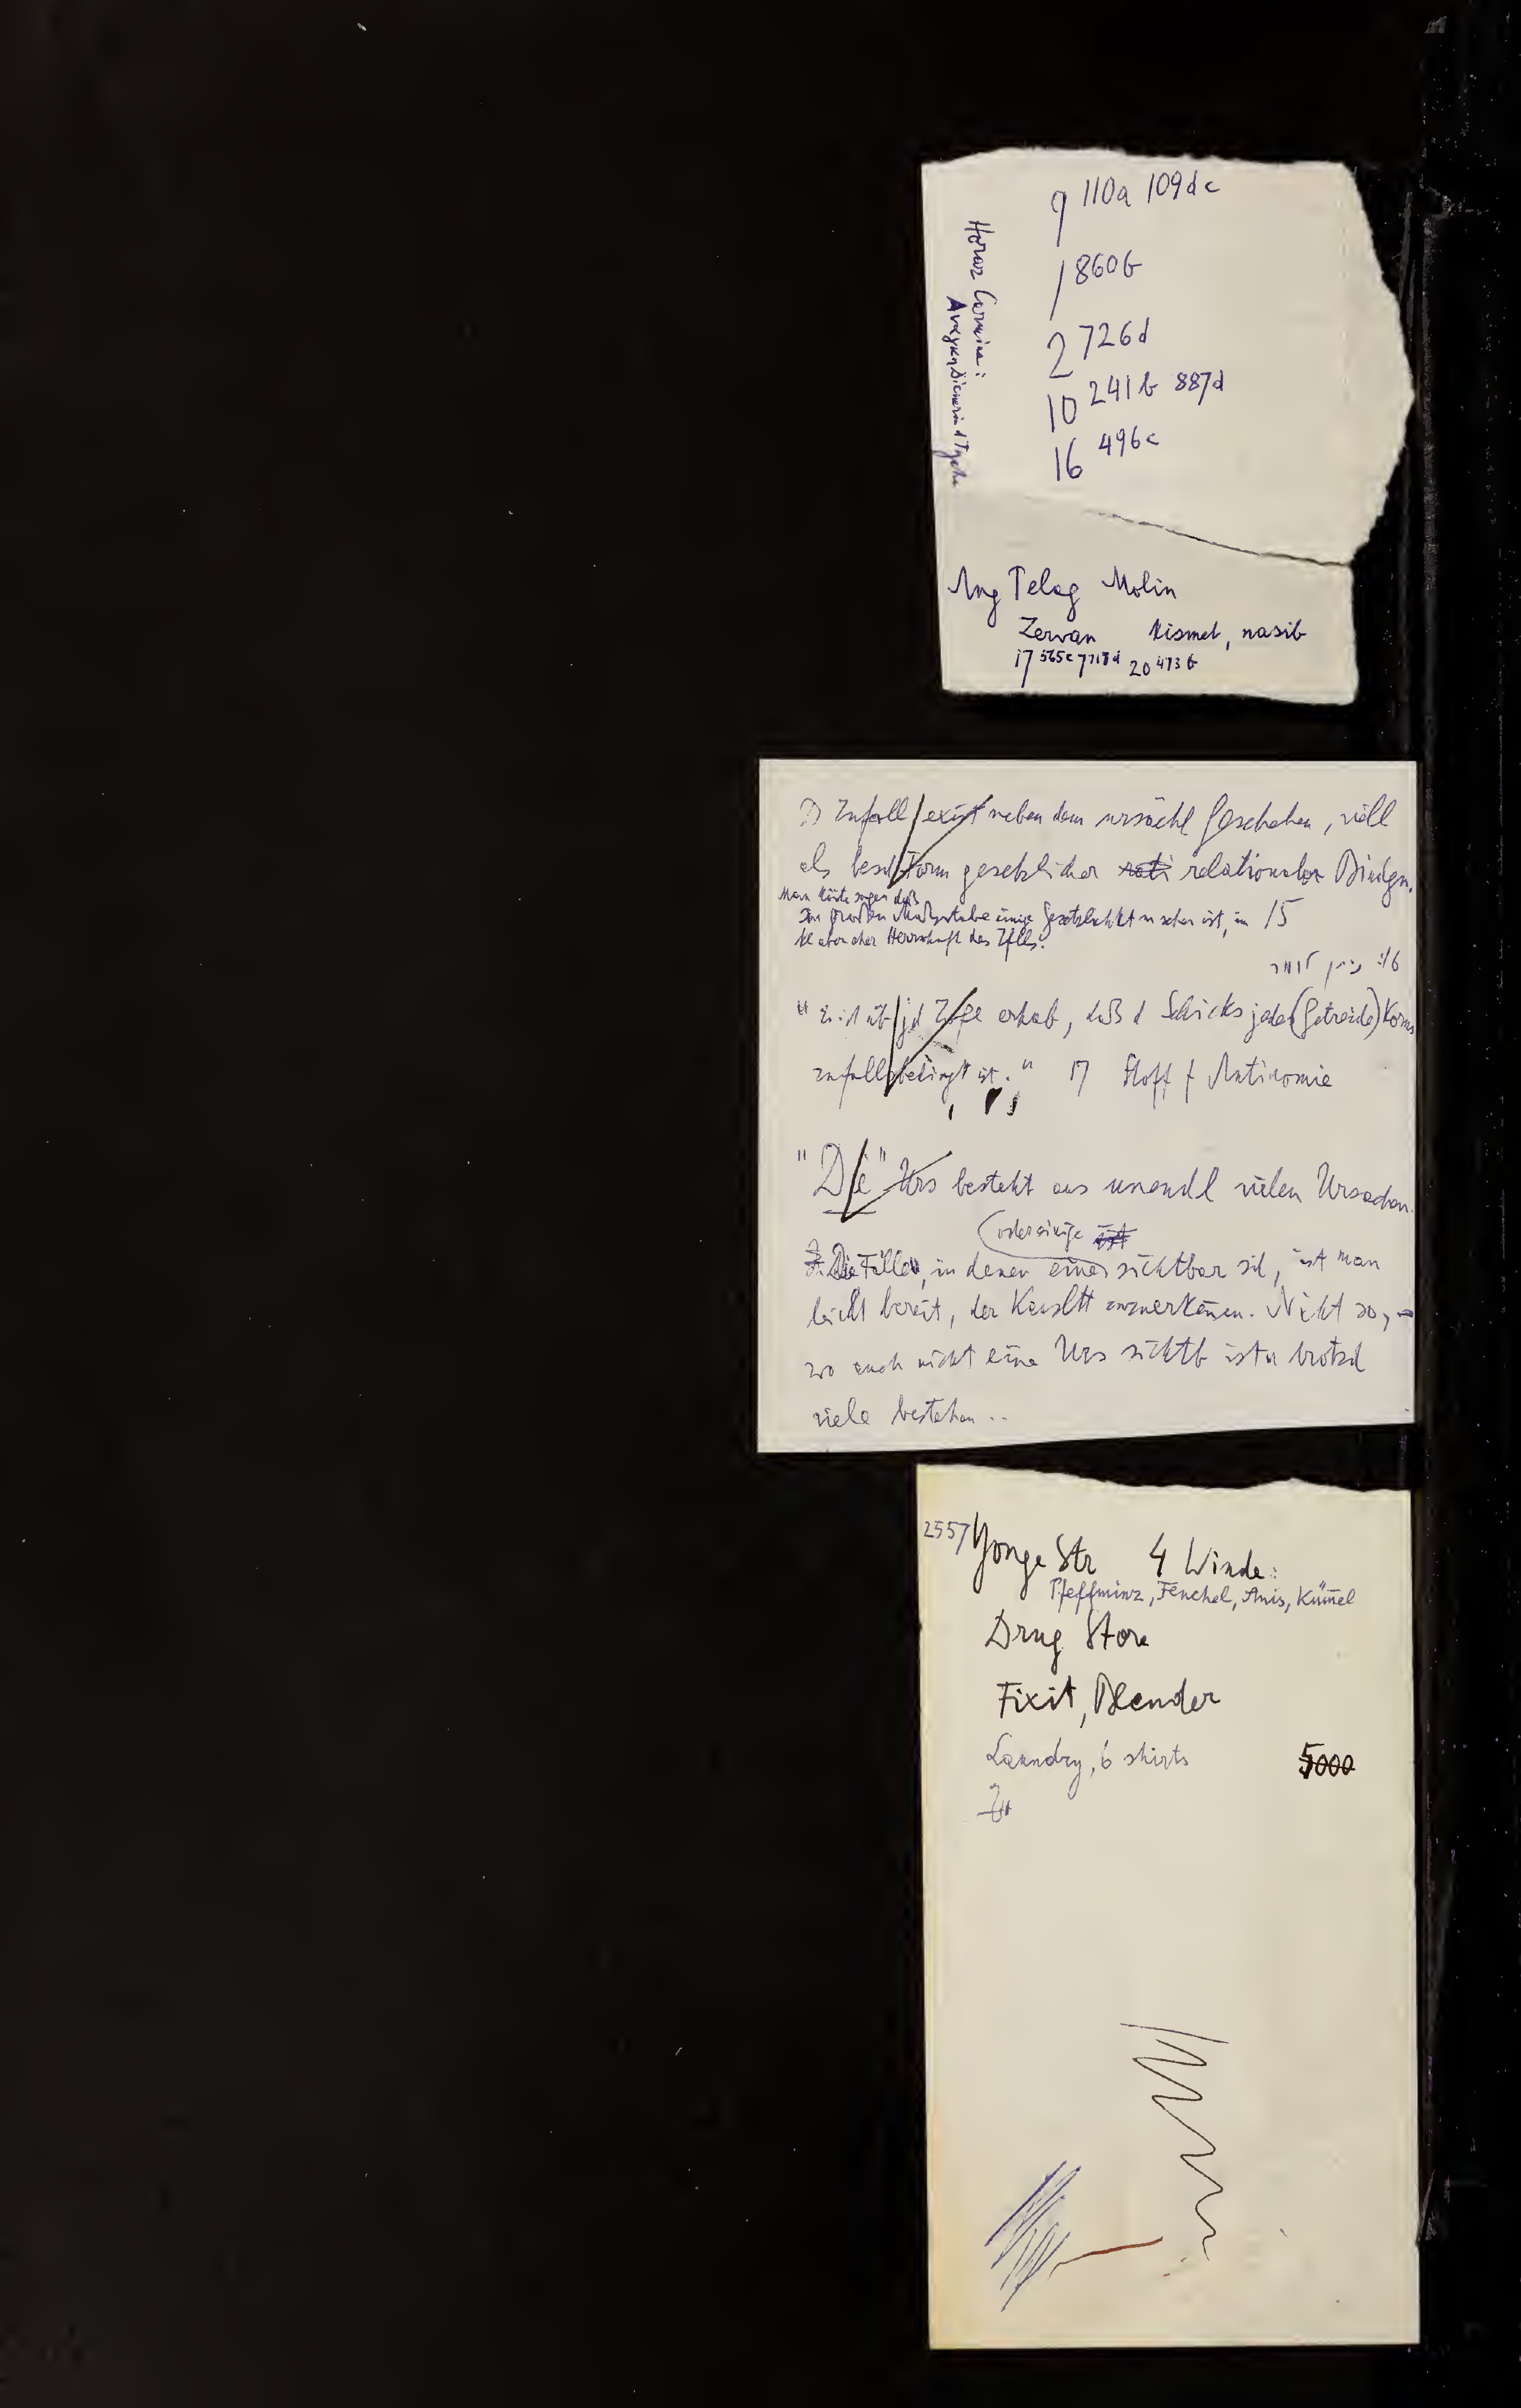 9 110a 109dc
1 860b
2 726d
10 241b 887d
16 496c
Horaz Carmina:
Ang Telag Molin
Zervan Kismet, nasib
17 565c 7718d 20 473b
D Zufall exist neben dem ursächl Geschehen, viell
als besd Form gesetzlicher relationaler Bindgn.
Man könte sagen daß
im großen Maßstabe einige Gesetzlichkt zu sehen ist, im 15
kl aber eher Herrschaft des Zflls.
16
erhab, daß d Schicks jedes (Getreide) Korns
zufallsbedingt ist." 17 Stoff f Antinomie
"Die" Urs besteht aus unendl vielen Ursachen.
oder einige ist
Die Fälle, in denen eine sichtbar sid, ist man
leicht bereit, der Kausltt anzuerkenen. Nicht so,
wo auch nicht eine Urs sichtb ist u trotzd
viele bestehen ..
2557 Yonge Str 4 Winde:
Pfeffminz, Fenchel, Anis, Kümel
Drug Store
Fixit, Blender
Laundry, 6 shirts 5000